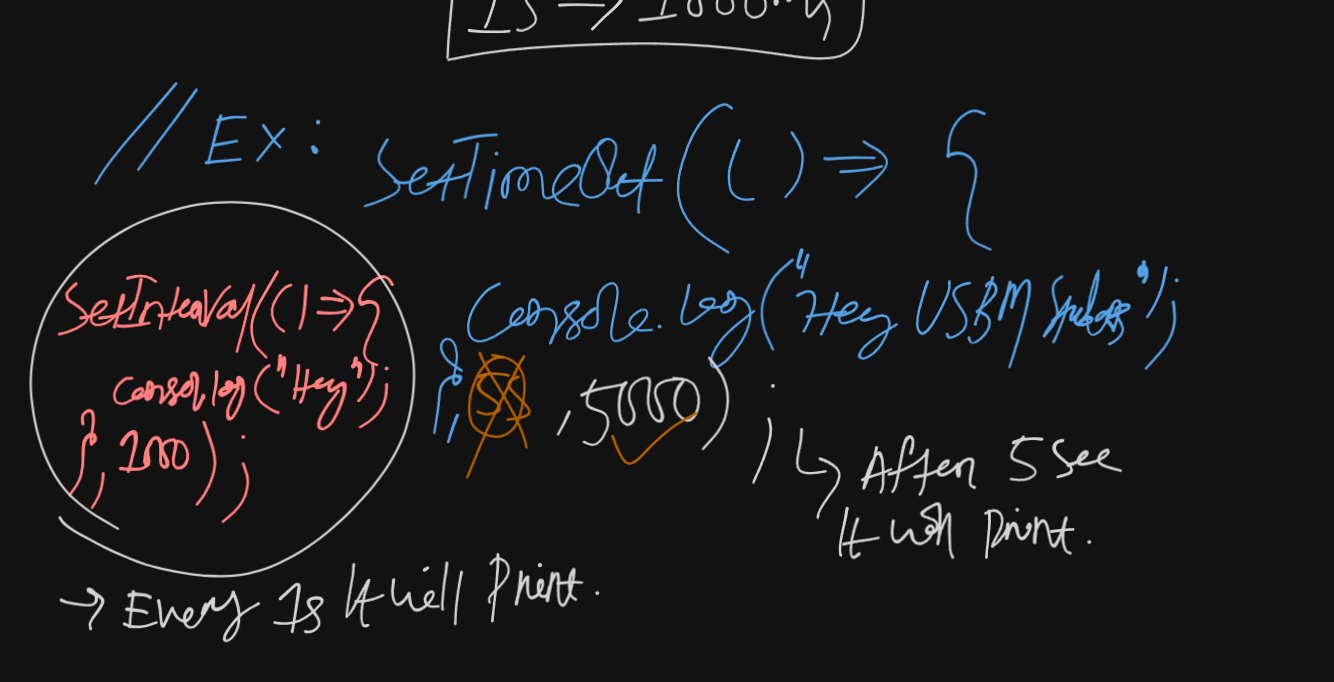 1s => 1000ms
// Ex: SetTimeOut(() => {
Console.log("Hey USBM Students");
}, 5s ,5000);
↳ After 5 Sec
It will print.
SetInterval(() => {
consol.log("Hey");
}, 1000);
→ Every 1s It will Print.